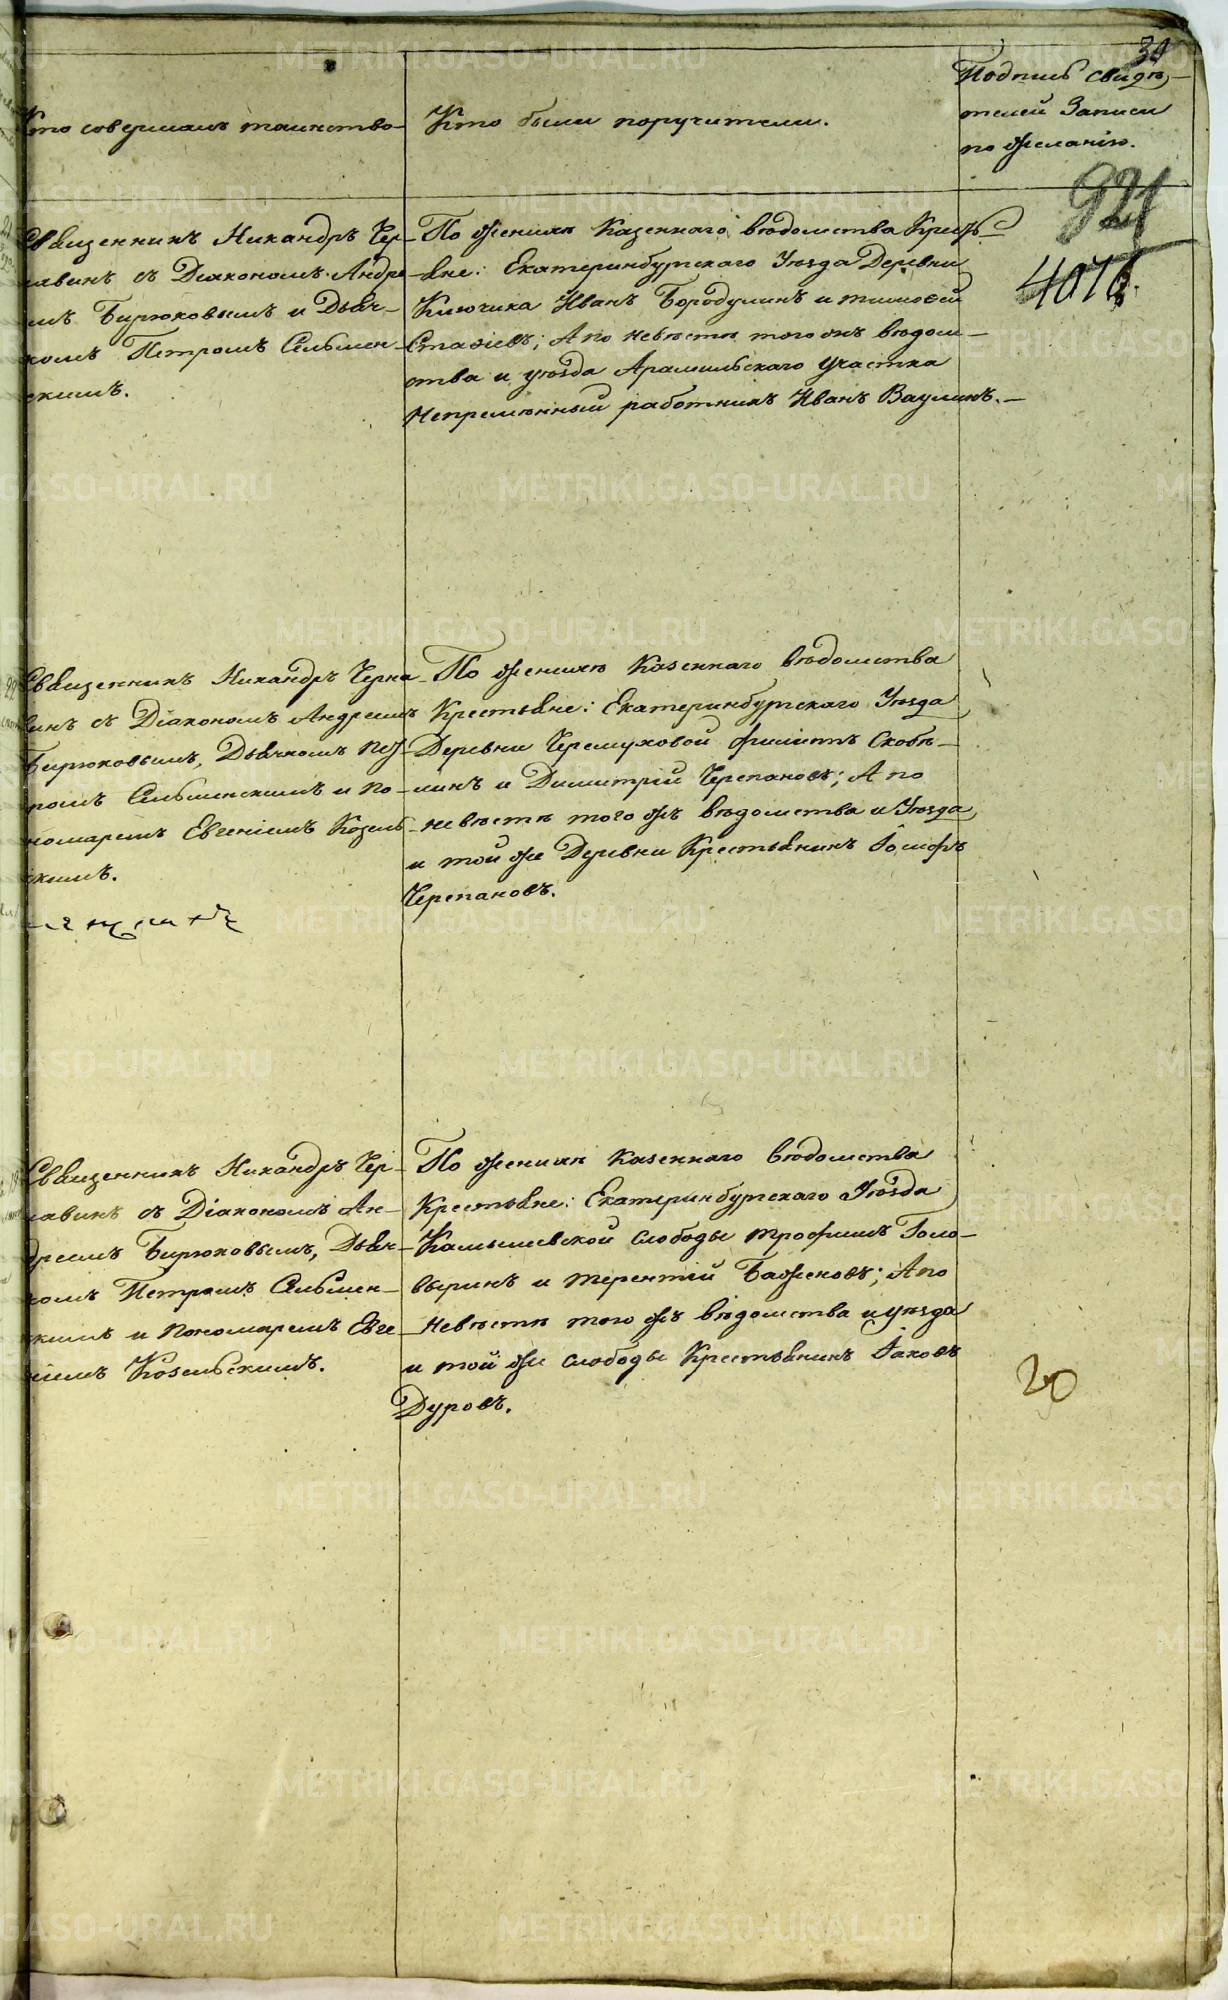 34
Кто совершалъ таинство
Кто были поручители.
Подпись свидѣ-
телей записи
по желанію.
921
4076.
Священникъ Никандръ Чер-
навинъ съ Діакономъ Андре-
емъ Бирюковымъ и Дьяч-
комъ Петромъ Сельмен-
скимъ.
По женихѣ Казеннаго вѣдомства Кресть-
яне: Екатеринбургскаго Уѣзда Деревни
Ключика Иванъ Бородулинъ и тимофей
Стафіевъ; А по невѣстѣ того жъ вѣдом-
ства и уѣзда Арамильскаго участка
Непремѣнный работникъ Иванъ Ваулинъ.
Священникъ Никандръ Черна-
винъ съ Діакономъ Андреемъ
Бирюковымъ, Дьячкомъ Пет-
ромъ Сельменскимъ и По-
номаремъ Евгеніемъ Козель-
скимъ.
По женихѣ Казеннаго вѣдомства
Крестьяне: Екатеринбургскаго Уѣзда
Деревни Черемуховой Филиппъ Скобѣ-
линъ и Димитрій Черепановъ; А по
невѣстѣ того жъ вѣдомства и Уѣзда
и той же Деревни Крестьянинъ Іосифъ
Черепановъ.
Священникъ Никандръ Чер-
навинъ съ Діакономъ Ан-
дреемъ Бирюковымъ, Дьяч-
комъ Петромъ Сельмен-
скимъ и Пономаремъ Евге-
ніемъ Козельскимъ.
По женихѣ Казеннаго вѣдомства
Крестьяне: Екатеринбургскаго Уѣзда
Камышевской слободы трофимъ Голо-
выринъ и терентій Баженовъ; А по
невѣстѣ того жъ вѣдомства и уѣзда
и той же слободы Крестьянинъ Іаковъ
Дуровъ.
20
METRIKI.GASO-URAL.RU